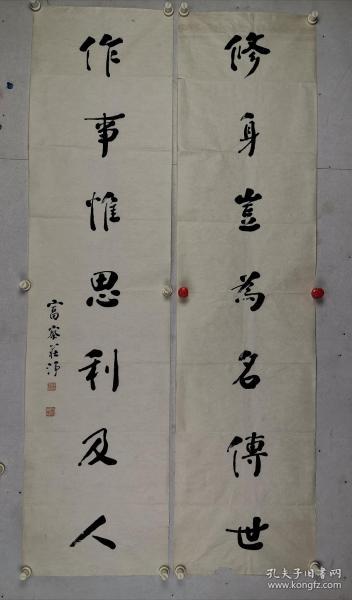 修身豈為名傳世
作事惟思利及人
富察莊淨
孔夫子旧书网
www.kongfz.com